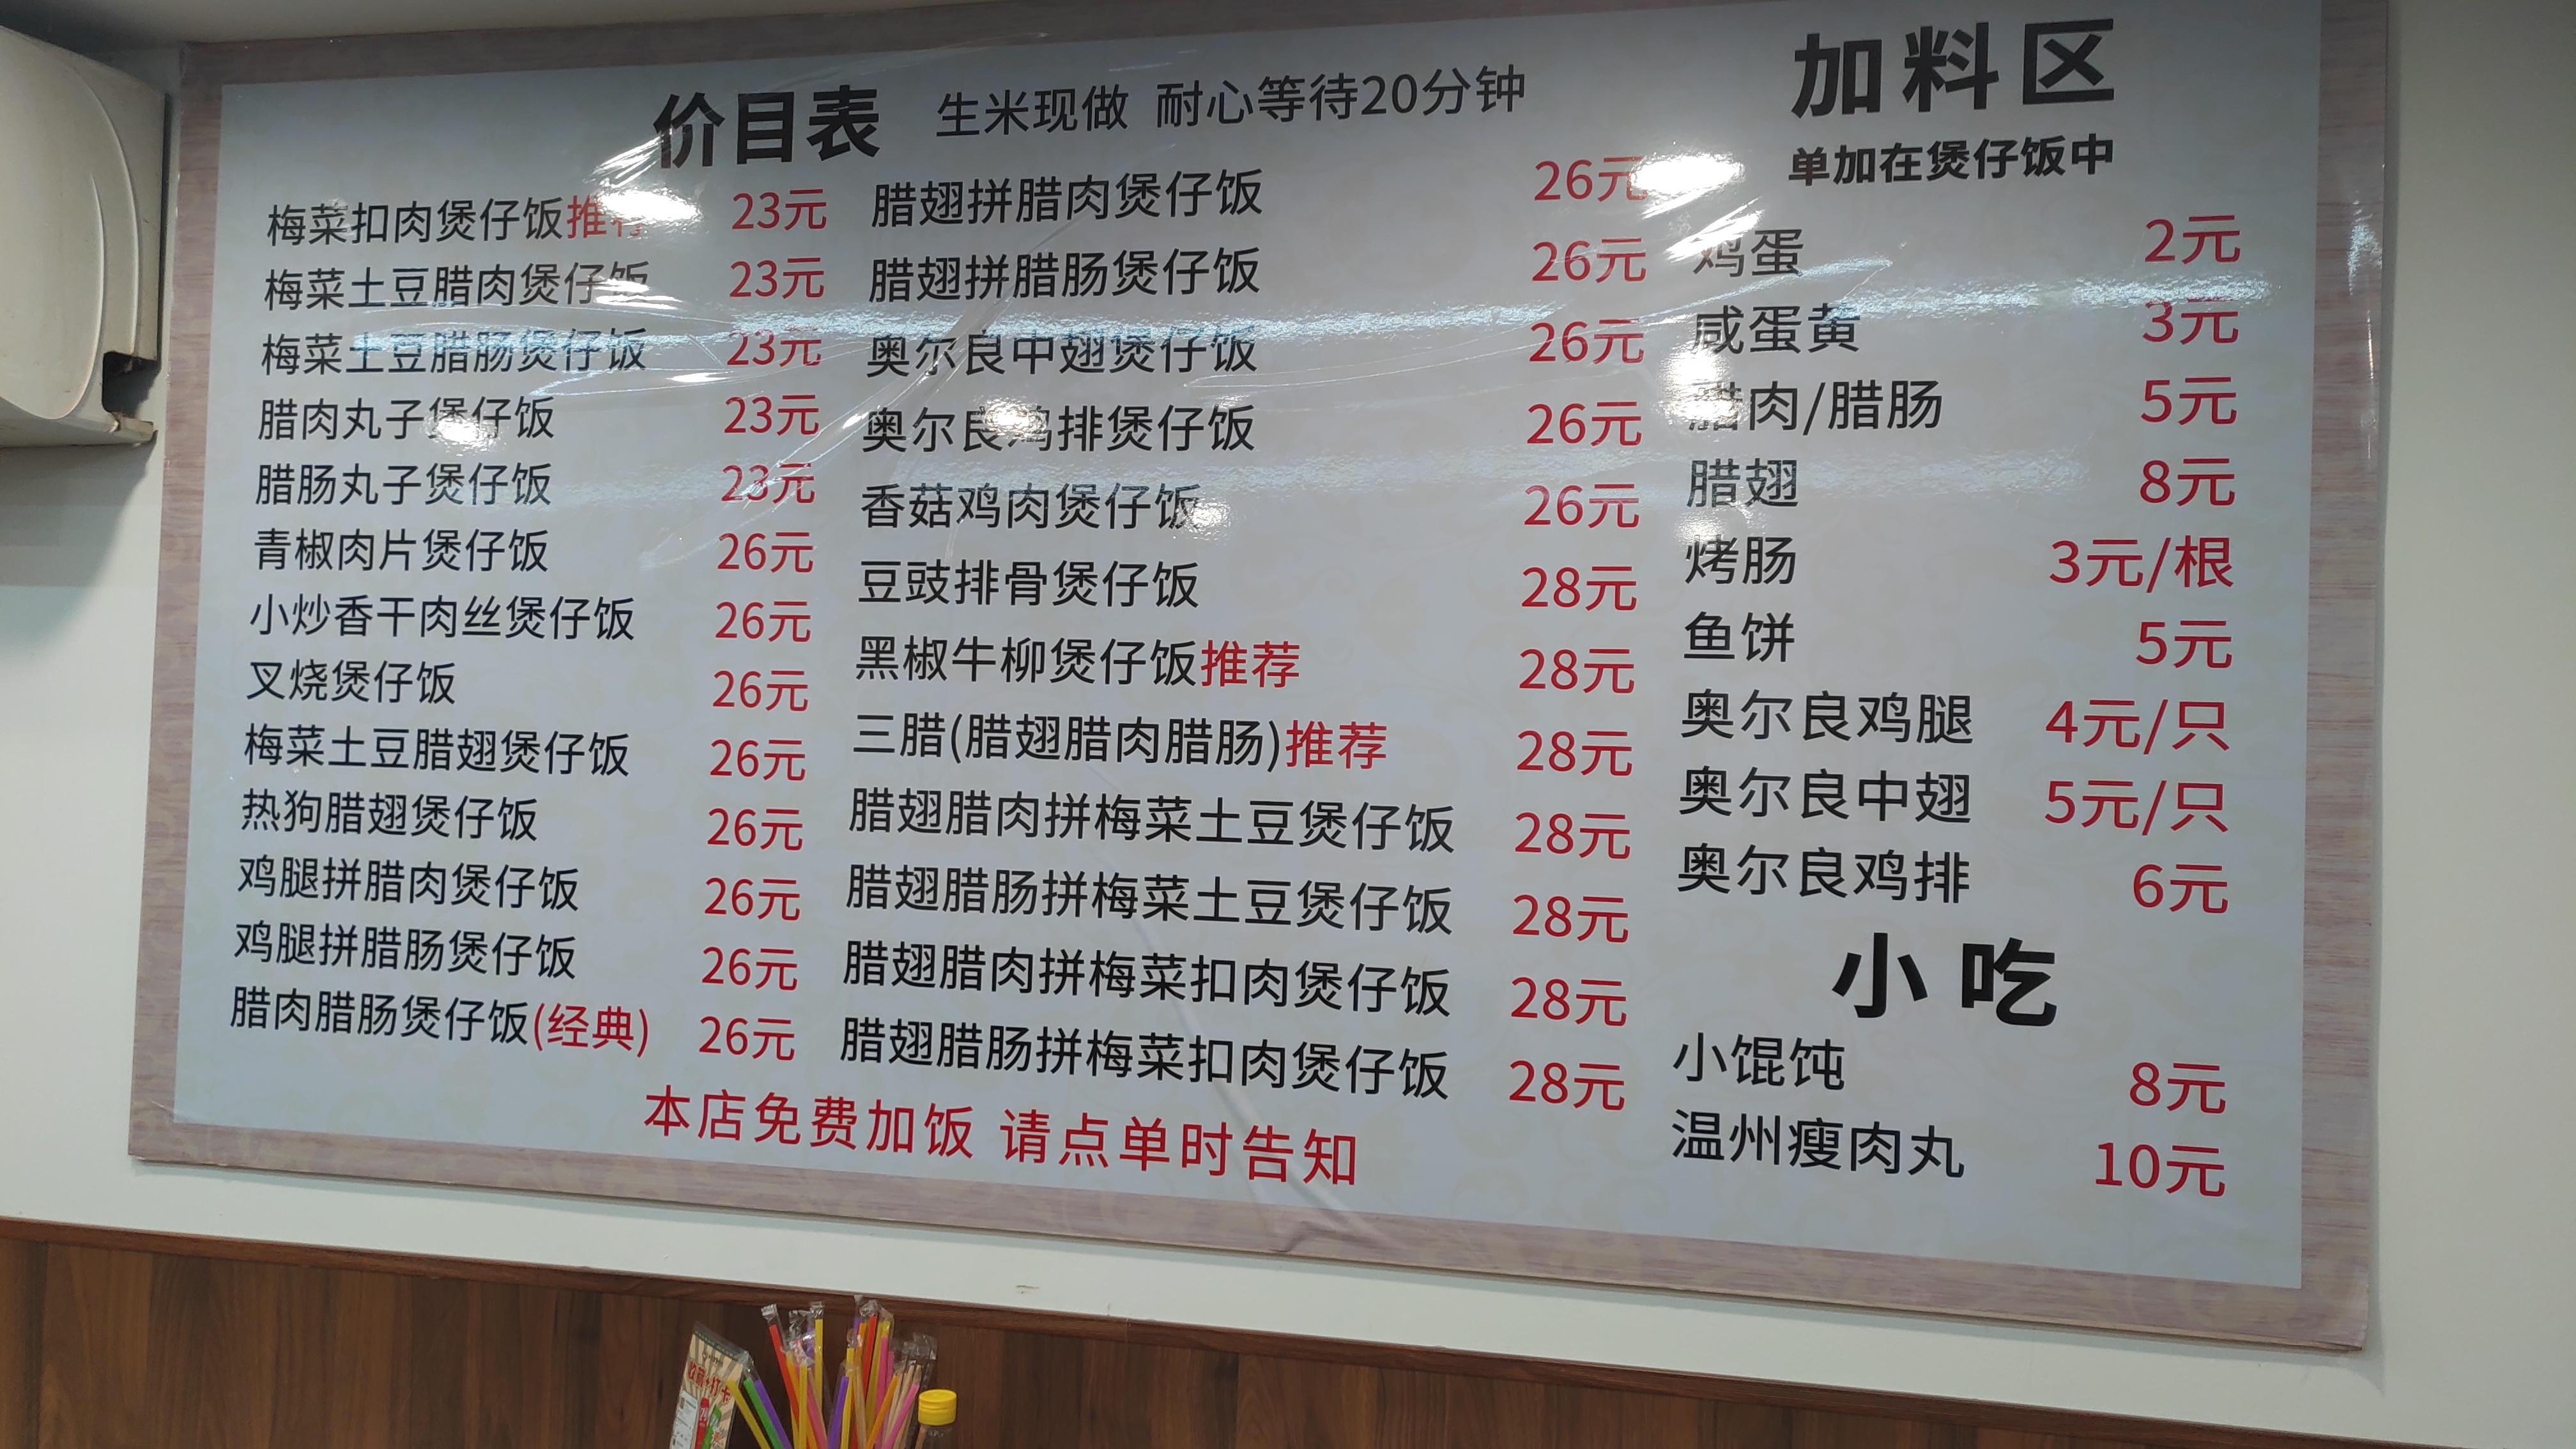 价目表 生米现做 耐心等待20分钟
梅菜扣肉煲仔饭推荐 23元
梅菜土豆腊肉煲仔饭 23元
梅菜土豆腊肠煲仔饭 23元
腊肉丸子煲仔饭 23元
腊肠丸子煲仔饭 23元
青椒肉片煲仔饭 26元
小炒香干肉丝煲仔饭 26元
叉烧煲仔饭 26元
梅菜土豆腊翅煲仔饭 26元
热狗腊翅煲仔饭 26元
鸡腿拼腊肉煲仔饭 26元
鸡腿拼腊肠煲仔饭 26元
腊肉腊肠煲仔饭(经典) 26元
腊翅拼腊肉煲仔饭 26元
腊翅拼腊肠煲仔饭 26元
奥尔良中翅煲仔饭 26元
奥尔良鸡排煲仔饭 26元
香菇鸡肉煲仔饭 26元
豆豉排骨煲仔饭 28元
黑椒牛柳煲仔饭推荐 28元
三腊(腊翅腊肉腊肠)推荐 28元
腊翅腊肉拼梅菜土豆煲仔饭 28元
腊翅腊肠拼梅菜土豆煲仔饭 28元
腊翅腊肉拼梅菜扣肉煲仔饭 28元
腊翅腊肠拼梅菜扣肉煲仔饭 28元
本店免费加饭 请点单时告知
加料区
单加在煲仔饭中
鸡蛋 2元
咸蛋黄 3元
腊肉/腊肠 5元
腊翅 8元
烤肠 3元/根
鱼饼 5元
奥尔良鸡腿 4元/只
奥尔良中翅 5元/只
奥尔良鸡排 6元
小吃
小馄饨 8元
温州瘦肉丸 10元